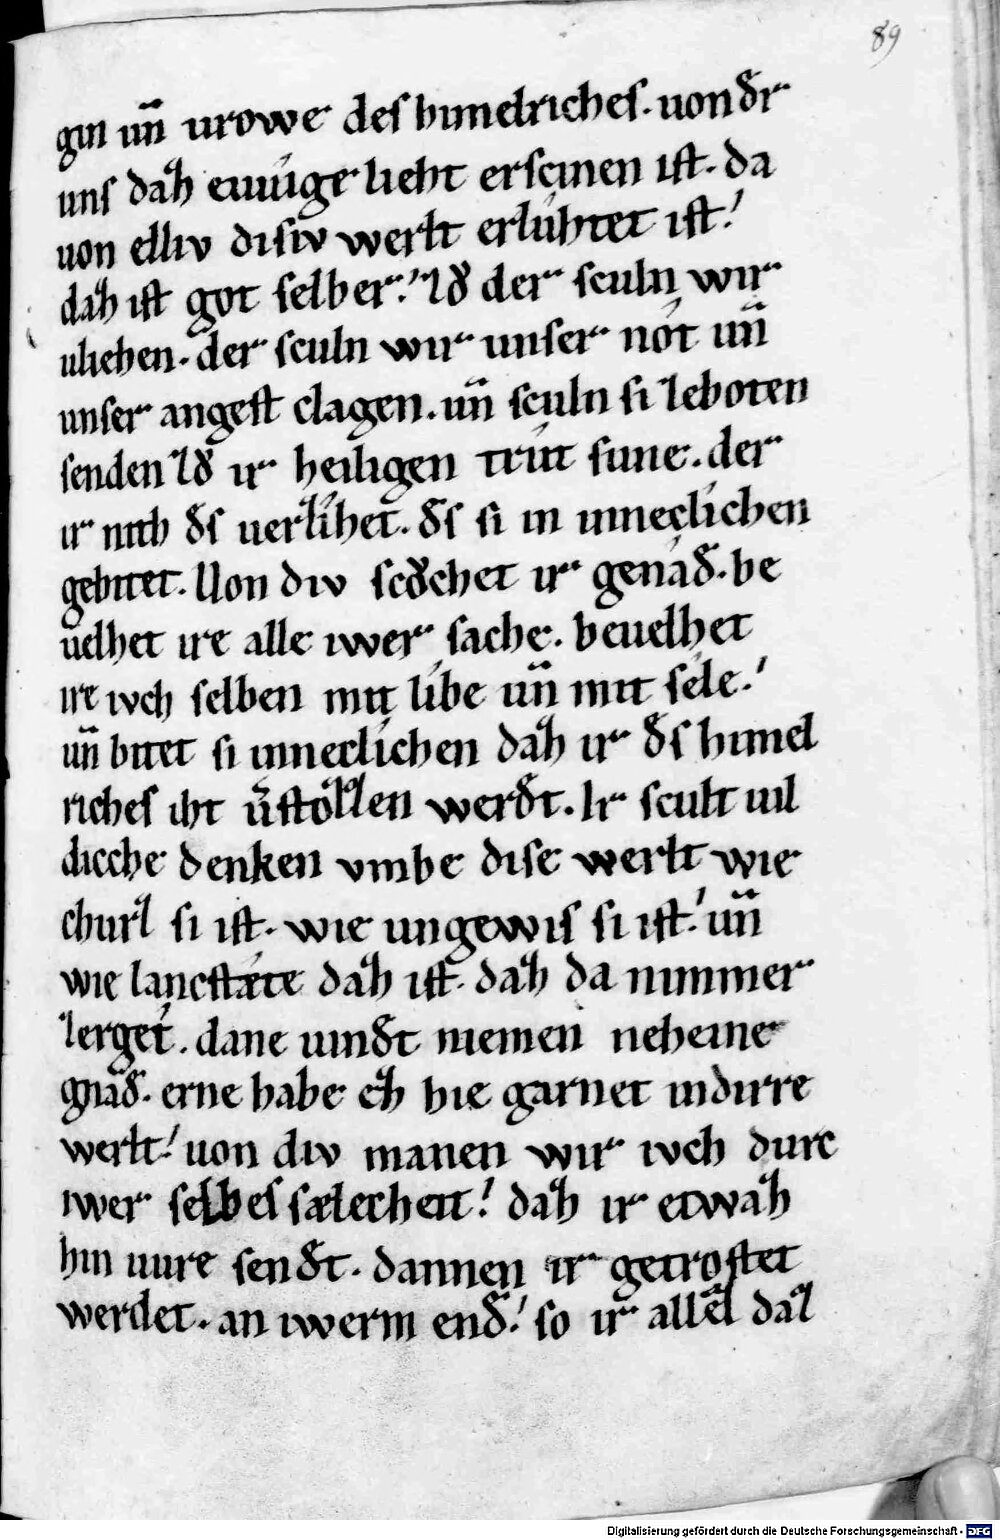 89
gin uñ urowe des himelriches. uon dr
uns daz ewige lieht erscinen ist. da
uon elliv disiv werlt erlúhtet ist!
daz ist got selber! Zŏ der sculn wir
uliehen. der sculn wir unser nôt uñ
unser angest clagen. uñ sculn si ze boten
senden zŏ ir heiligen trût sune. der
ir nith ds uerzîhet. ds si in inneclîchen
gebitet. Uon div sŏchet ir genâd. be
uelhet ire alle iwer sache. beuelhet
ire iuch selben mit lîbe uñ mit sêle!
uñ bitet si inneclîchen daz ir ds himel
riches iht ũstôzzen werdt. Ir scult uil
dicche denken umbe dise werlt wie
churz si ist. wie ungewis si ist! uñ
wie lancstæte daz ist. daz da nimmer
zergêt. dane uindt niemen neheine
gnâd. erne habe ez hie garnet in dirre
werlt! uon div manen wir iuch durc
iwer selbes sælecheit! daz ir etwaz
hin uure sendt. dannen ir getrostet
werdet. an iwerm end! so ir allez daz
Digitalisierung gefördert durch die Deutsche Forschungsgemeinschaft - DFG